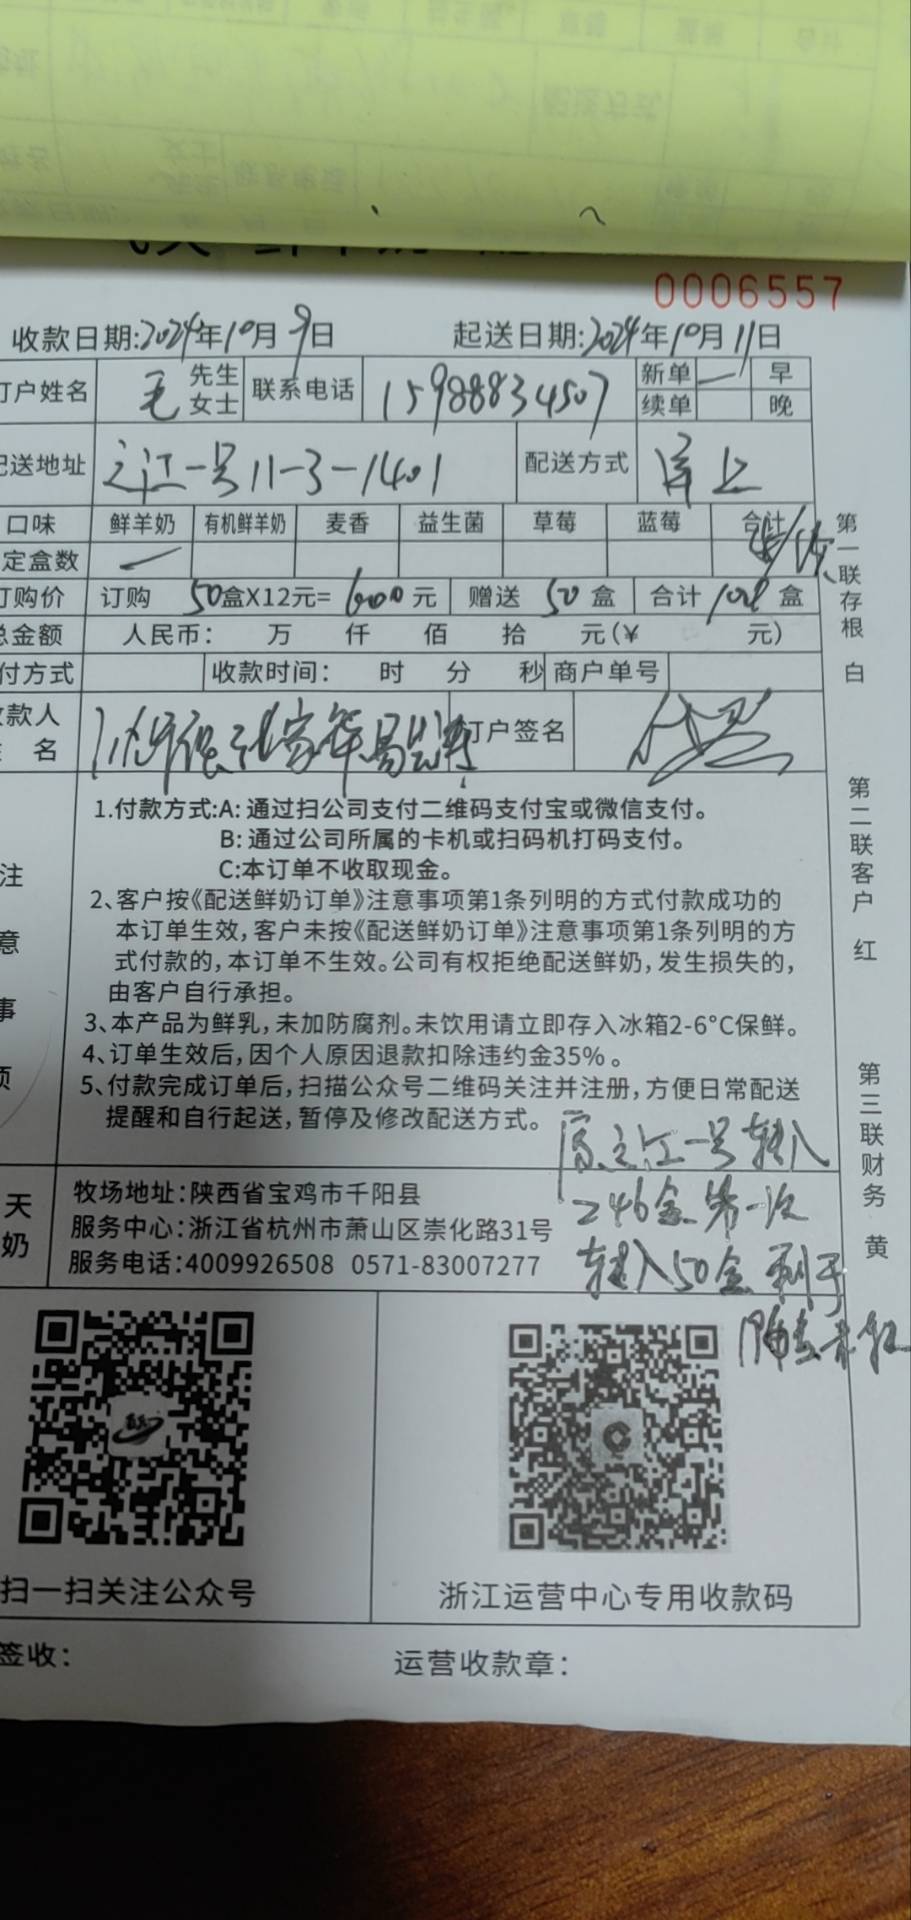 0006557
收款日期:2024年10月9日 起送日期:2024年10月11日
订户姓名 毛 先生 女士 联系电话 15988834507 新单 一 早
续单 晚
配送地址 之江一号11-3-1401 配送方式 上
口味 鲜羊奶 有机鲜羊奶 麦香 益生菌 草莓 蓝莓 合计
定盒数 一
订购价 订购 50盒X12元=600元 赠送 50盒 合计 100盒
总金额 人民币: 万 仟 佰 拾 元(¥ 元)
付方式 收款时间: 时 分 秒 商户单号
收款人
姓 名
订户签名
注
意
事
项
1.付款方式:A: 通过扫公司支付二维码支付宝或微信支付。
B: 通过公司所属的卡机或扫码机打码支付。
C:本订单不收取现金。
2、客户按《配送鲜奶订单》注意事项第1条列明的方式付款成功的
本订单生效,客户未按《配送鲜奶订单》注意事项第1条列明的方
式付款的,本订单不生效。公司有权拒绝配送鲜奶,发生损失的,
由客户自行承担。
3、本产品为鲜乳,未加防腐剂。未饮用请立即存入冰箱2-6°C保鲜。
4、订单生效后,因个人原因退款扣除违约金35%。
5、付款完成订单后,扫描公众号二维码关注并注册,方便日常配送
提醒和自行起送,暂停及修改配送方式。
原之江一号转入
246盒 第一次
转入50盒 剩于
天
奶
牧场地址:陕西省宝鸡市千阳县
服务中心:浙江省杭州市萧山区崇化路31号
服务电话:4009926508 0571-83007277
扫一扫关注公众号
浙江运营中心专用收款码
签收:
运营收款章:
第一联存根 白
第二联客户 红
第三联财务 黄